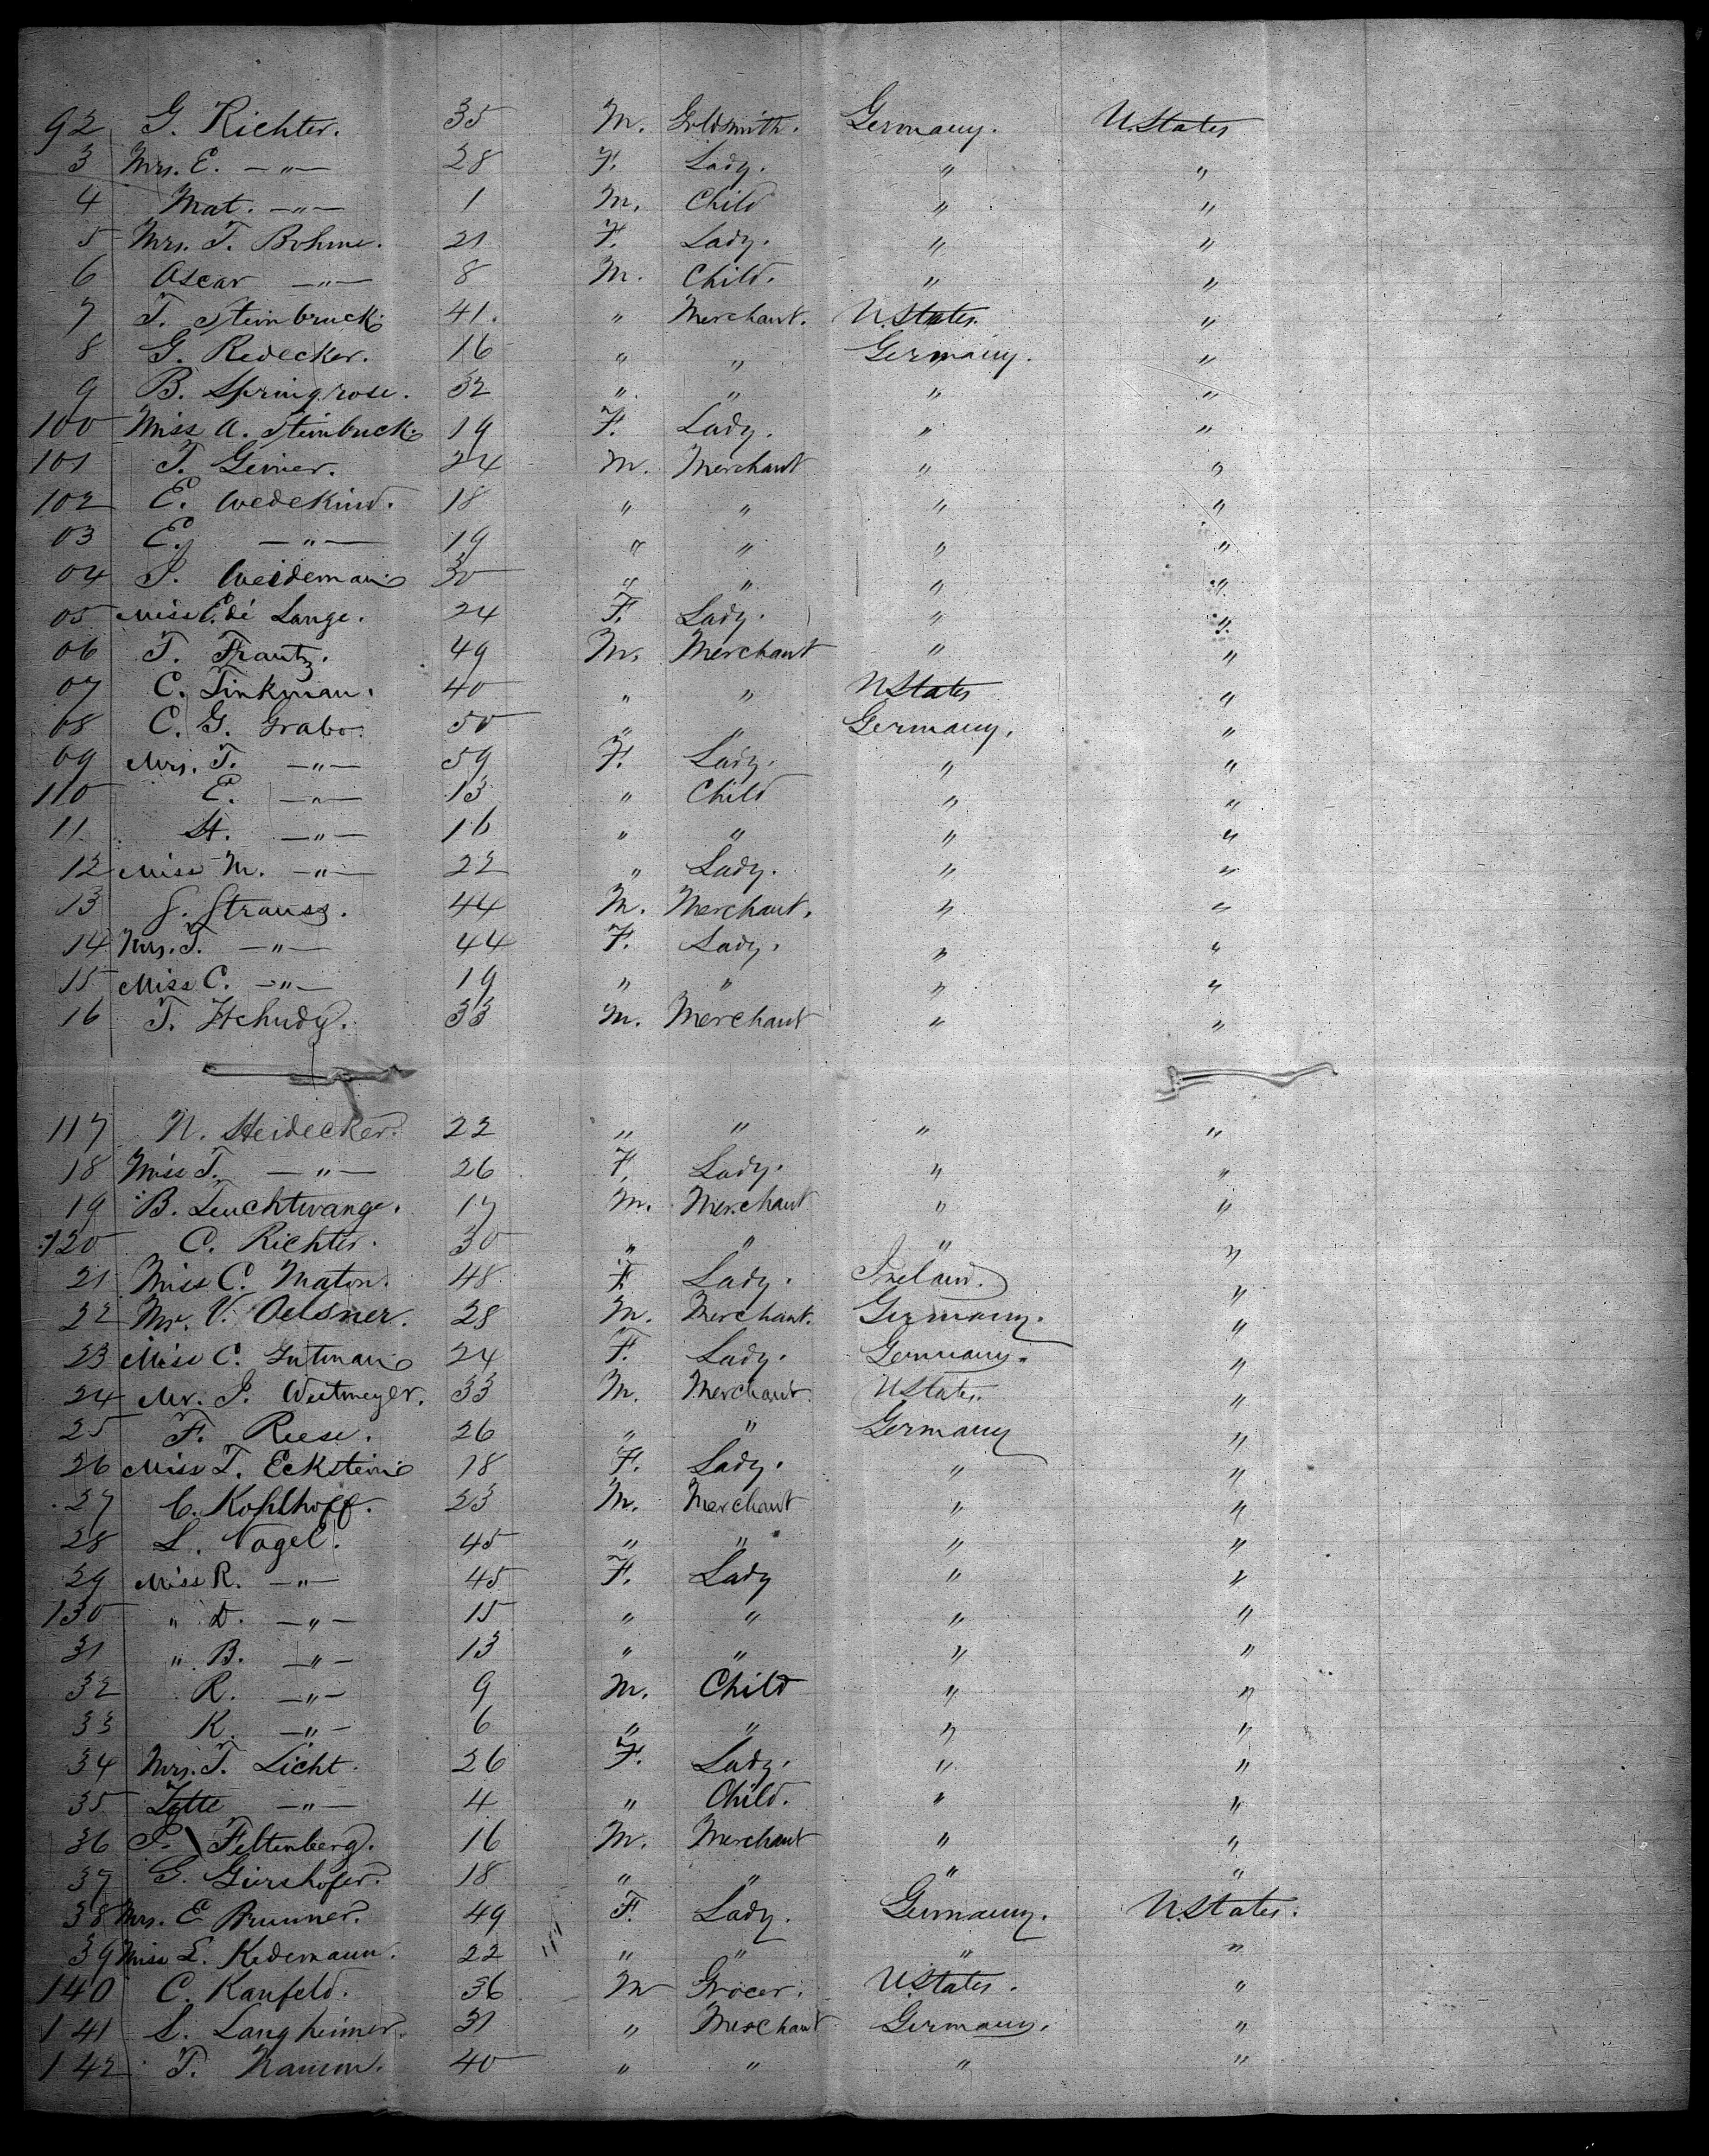 92 G. Richter. 35 M. Goldsmith. Germany. U.States
3 Mrs. E. —"— 28 F. Lady. " "
4 Mat. —"— 1 M. Child " "
5 Mrs. T. Bohme. 21 F. Lady. " "
6 Oscar —"— 8 M. Child. " "
7 T. Steinbruck. 41. " Merchant. U.States. "
8 G. Redecker. 16 " " Germany. "
9 B. Springrose. 32 " " " "
100 Miss A. Steinbuck. 19 F. Lady. " "
101 T. Geiner. 24 M. Merchant " "
102 E. Wedekind. 18 " " " "
03 E. —"— 19 " " " "
04 J. Weideman 30 " " " "
05 Miss E. de Lange. 24 F. Lady. " "
06 T. Frantz. 49 M. Merchant " "
07 C. Tinkman. 40 " " U States "
08 C. G. Grabo. 50 " " Germany. "
09 Mrs. T. —"— 59 F. Lady. " "
110 E. —"— 13 " Child " "
11 H. —"— 16 " " " "
12 Miss M. —"— 22 " Lady. " "
13 S. Strauss. 44 M. Merchant. " "
14 Mrs. T. —"— 44 F. Lady. " "
15 Miss C. —"— 19 " " " "
16 T. 33 M. Merchant " "
117 N. Heidecker. 22 " " " "
18 Miss T. —"— 26 F. Lady. " "
19 B. 17 M. Merchant " "
120 C. Richter. 30 " " " "
21 Miss C. Maton. 48 F. Lady. Ireland. "
22 Mr. V. Oelsner. 28 M. Merchant. Germany. "
23 Miss C. Gutman 24 F. Lady. Germany. "
24 Mr. J. Weitmeyer. 33 M. Merchant. U States. "
25 F. Reese. 26 " " Germany "
26 Miss T. Eckstein 18 F. Lady. " "
27 C. Kohlhoff. 23 M. Merchant " "
28 L. Vogel. 45 " " " "
29 Miss R. —"— 45 F. Lady " "
130 " D. —"— 15 " " " "
31 " B. —"— 13 " " " "
32 R. —"— 9 M. Child " "
33 K. —"— 6 " " " "
34 Mrs. T. Licht. 26 F. Lady. " "
35 —"— 4 " Child. " "
36 Feltenberg. 16 M. Merchant " "
37 G. Girshofer. 18 " " " "
38 Mrs. E Brunner. 49 F. Lady. Germany. U.States.
39 Miss L. Kedemann. 22 " " " "
140 C. Kanfeld. 36 M Grocer. U.States. "
141 L. Langheimer. 31 " Merchant Germany. "
142 T. 40 " " " "